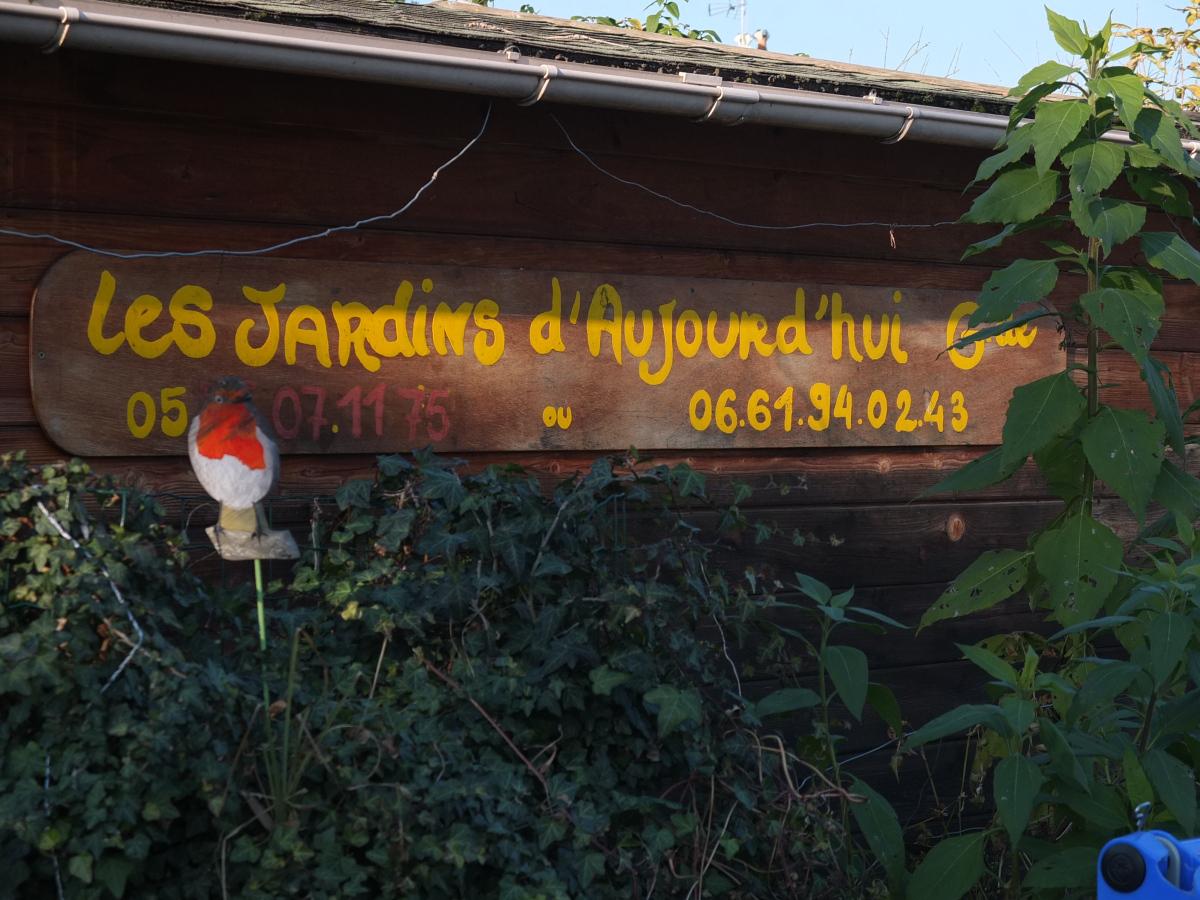 Les Jardins d'Aujourd'hui
05 07.11 75 ou 06.61.94.02.43